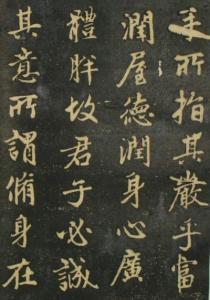 手所指其嚴乎富
潤屋德潤身心廣
體胖故君子必誠
其意所謂脩身在